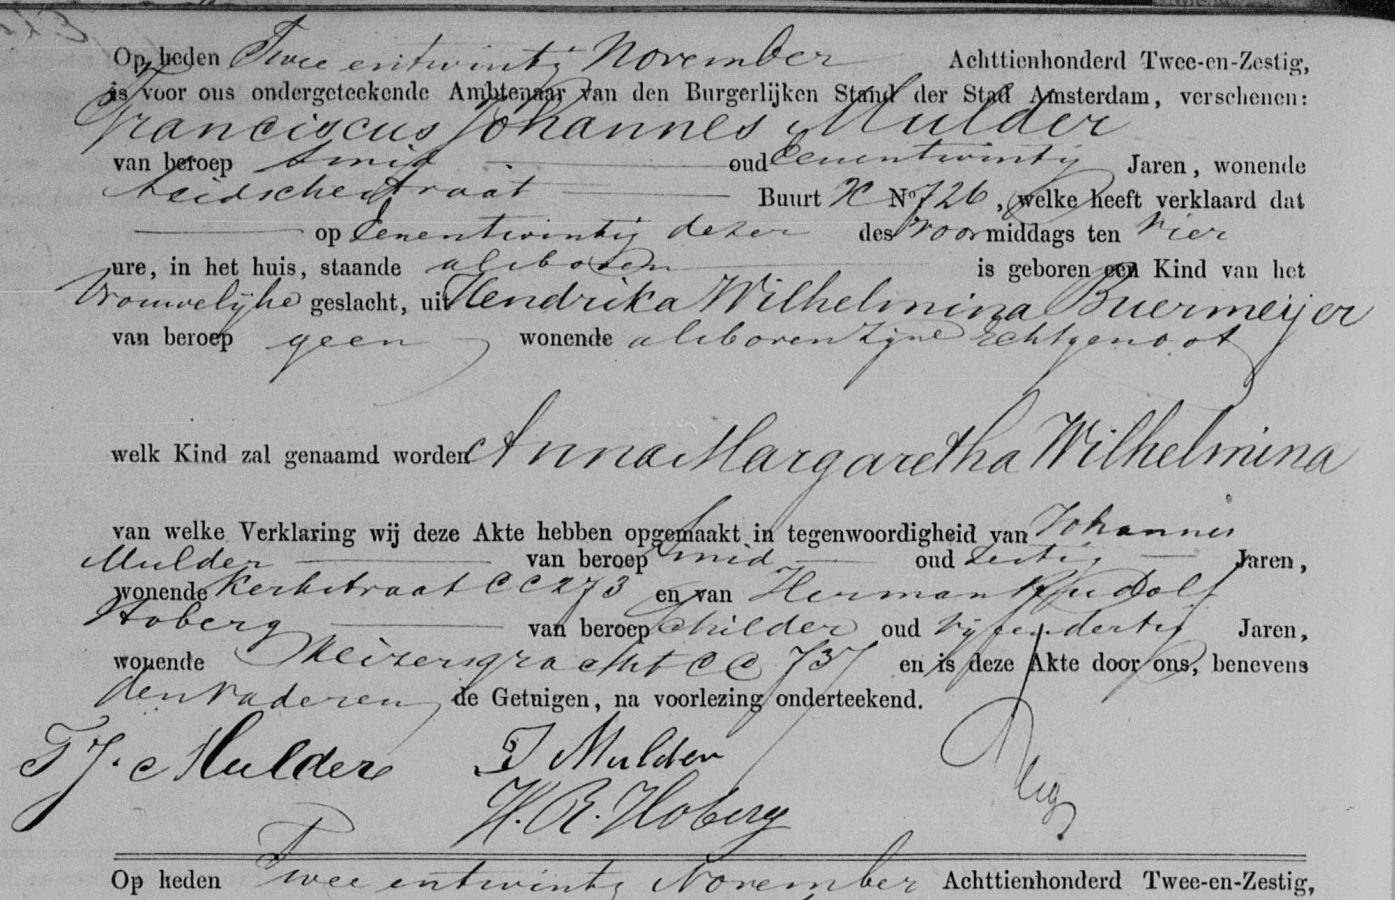 Op heden Twee entwintig November Achttienhonderd Twee-en-Zestig,
is voor ons ondergeteekende Ambtenaar van den Burgerlijken Stand der Stad Amsterdam, verschenen:
Franciscus Johannes Mulder
van beroep Smid oud Eenentwintig Jaren, wonende
Leidschestraat Buurt N° 726, welke heeft verklaard dat
op Eenentwintig dezer des Voormiddags ten Vier
ure, in het huis, staande alsboven is geboren een Kind van het
Vrouwelijke geslacht, uit Hendrika Wilhelmina Buermeijer
van beroep geen wonende alsboven zijne Echtgenoot
welk Kind zal genaamd worden Anna Margaretha Wilhelmina
van welke Verklaring wij deze Akte hebben opgemaakt in tegenwoordigheid van Johannes
Mulder van beroep Smid oud Zestig Jaren,
wonende Kerkstraat CC 273 en van Herman Rudolf
Hoberg van beroep Schilder oud Vijfendertig Jaren,
wonende Keizersgracht CC 737 en is deze Akte door ons, benevens
den Vader en de Getuigen, na voorlezing onderteekend.
F J. Mulder J Mulder
H. R. Hoberg
Op heden Twee entwintig November Achttienhonderd Twee-en-Zestig,